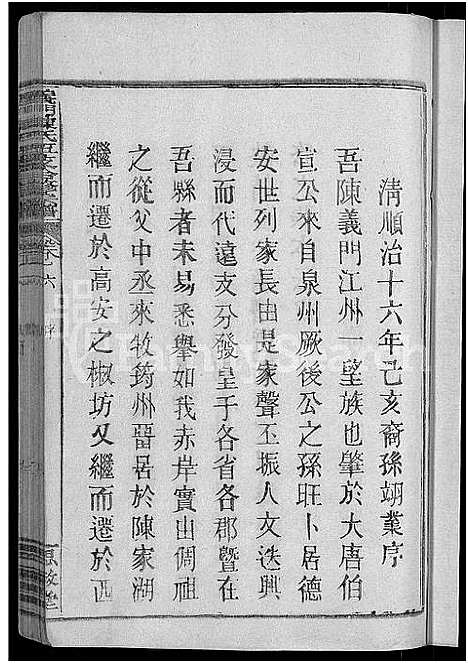 清順治十六年己亥裔孫翊業序
吾陳義門江州一望族也肇於大唐伯
宣公來自泉州厥後公之孫旺卜居德
安世列家長由是家聲丕振人文迭興
浸而代遠支分發皇于各省各郡暨在
吾縣者未易悉舉如我赤岸實出倜祖
之從父中丞來牧筠州畱居於陳家湖
繼而遷於高安之椒坊又繼而遷於西
義門陳氏
六 序
FamilySearch